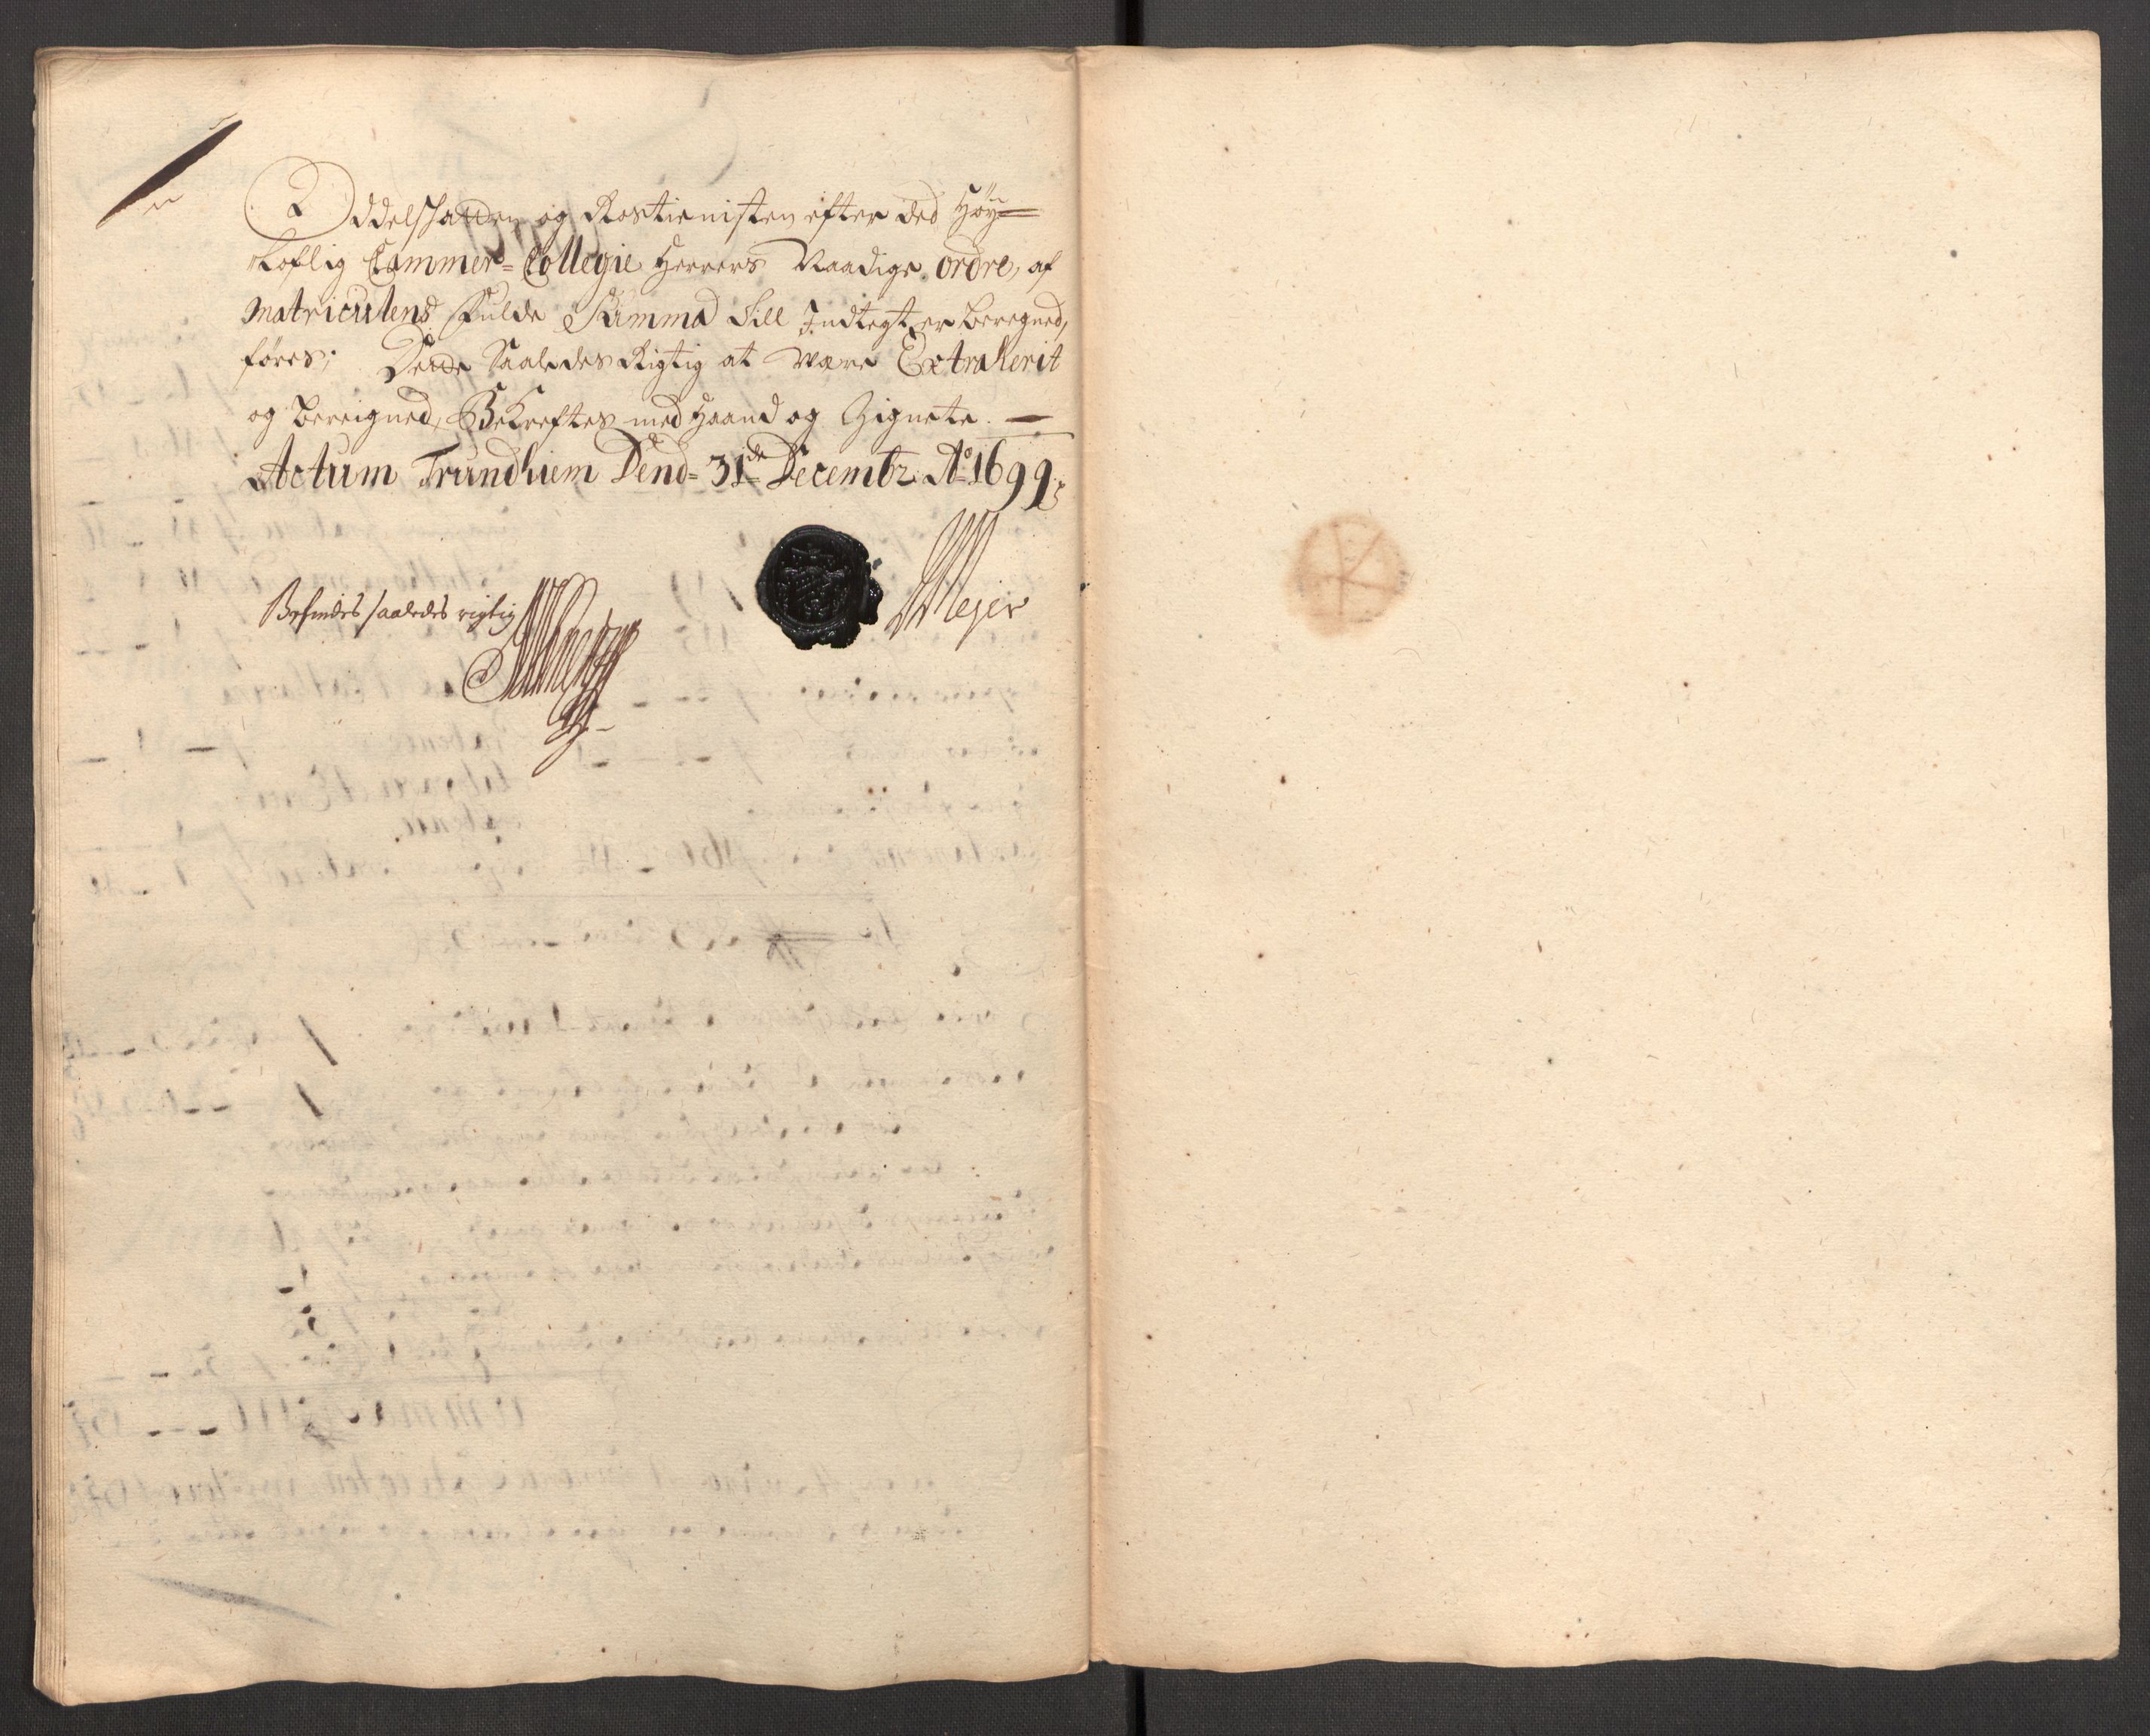 Oddelskatten og Rostienisten efter ded Höy-
Loflig Cammer-Collegie Herrers Naadige ordre, af
Matriculens fulde Summa till Indtegt er beregned,
føres; Dette Saaledes Rigtig at være Extraherit
og bereigned, Bekreftes med Haand og Zignete.
Actum Trundhiem Dend 31de Decembr Ao 1699
Befindes saaledes rigtig